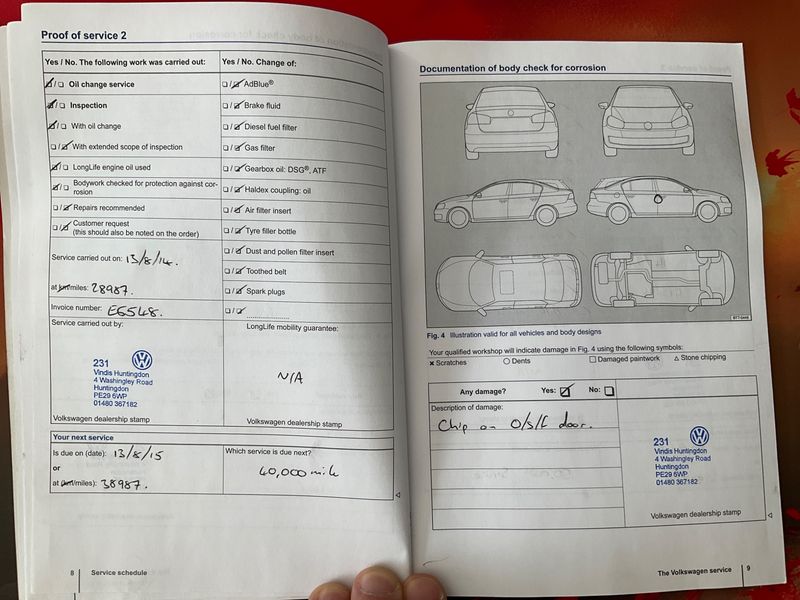 Proof of service 2
Yes / No. The following work was carried out:
Oil change service
Inspection
With oil change
With extended scope of inspection
LongLife engine oil used
Bodywork checked for protection against cor-
rosion
Repairs recommended
Customer request
(this should also be noted on the order)
Service carried out on: 13/8/14.
at km/miles: 28987.
Invoice number: E6548.
Service carried out by:
231
Vindis Huntingdon
4 Washingley Road
Huntingdon
PE29 6WP
01480 367182
Volkswagen dealership stamp
Yes / No. Change of:
AdBlue®
Brake fluid
Diesel fuel filter
Gas filter
Gearbox oil: DSG®, ATF
Haldex coupling: oil
Air filter insert
Tyre filler bottle
Dust and pollen filter insert
Toothed belt
Spark plugs
LongLife mobility guarantee:
N/A
Volkswagen dealership stamp
Your next service
Is due on (date): 13/8/15
or
at (km/miles): 38987.
Which service is due next?
40,000 mile
8 Service schedule
Documentation of body check for corrosion
Fig. 4 Illustration valid for all vehicles and body designs
Your qualified workshop will indicate damage in Fig. 4 using the following symbols:
× Scratches ○ Dents □ Damaged paintwork △ Stone chipping
Any damage? Yes: No:
Description of damage:
Chip on O/S/F door.
231
Vindis Huntingdon
4 Washingley Road
Huntingdon
PE29 6WP
01480 367182
Volkswagen dealership stamp
The Volkswagen service 9